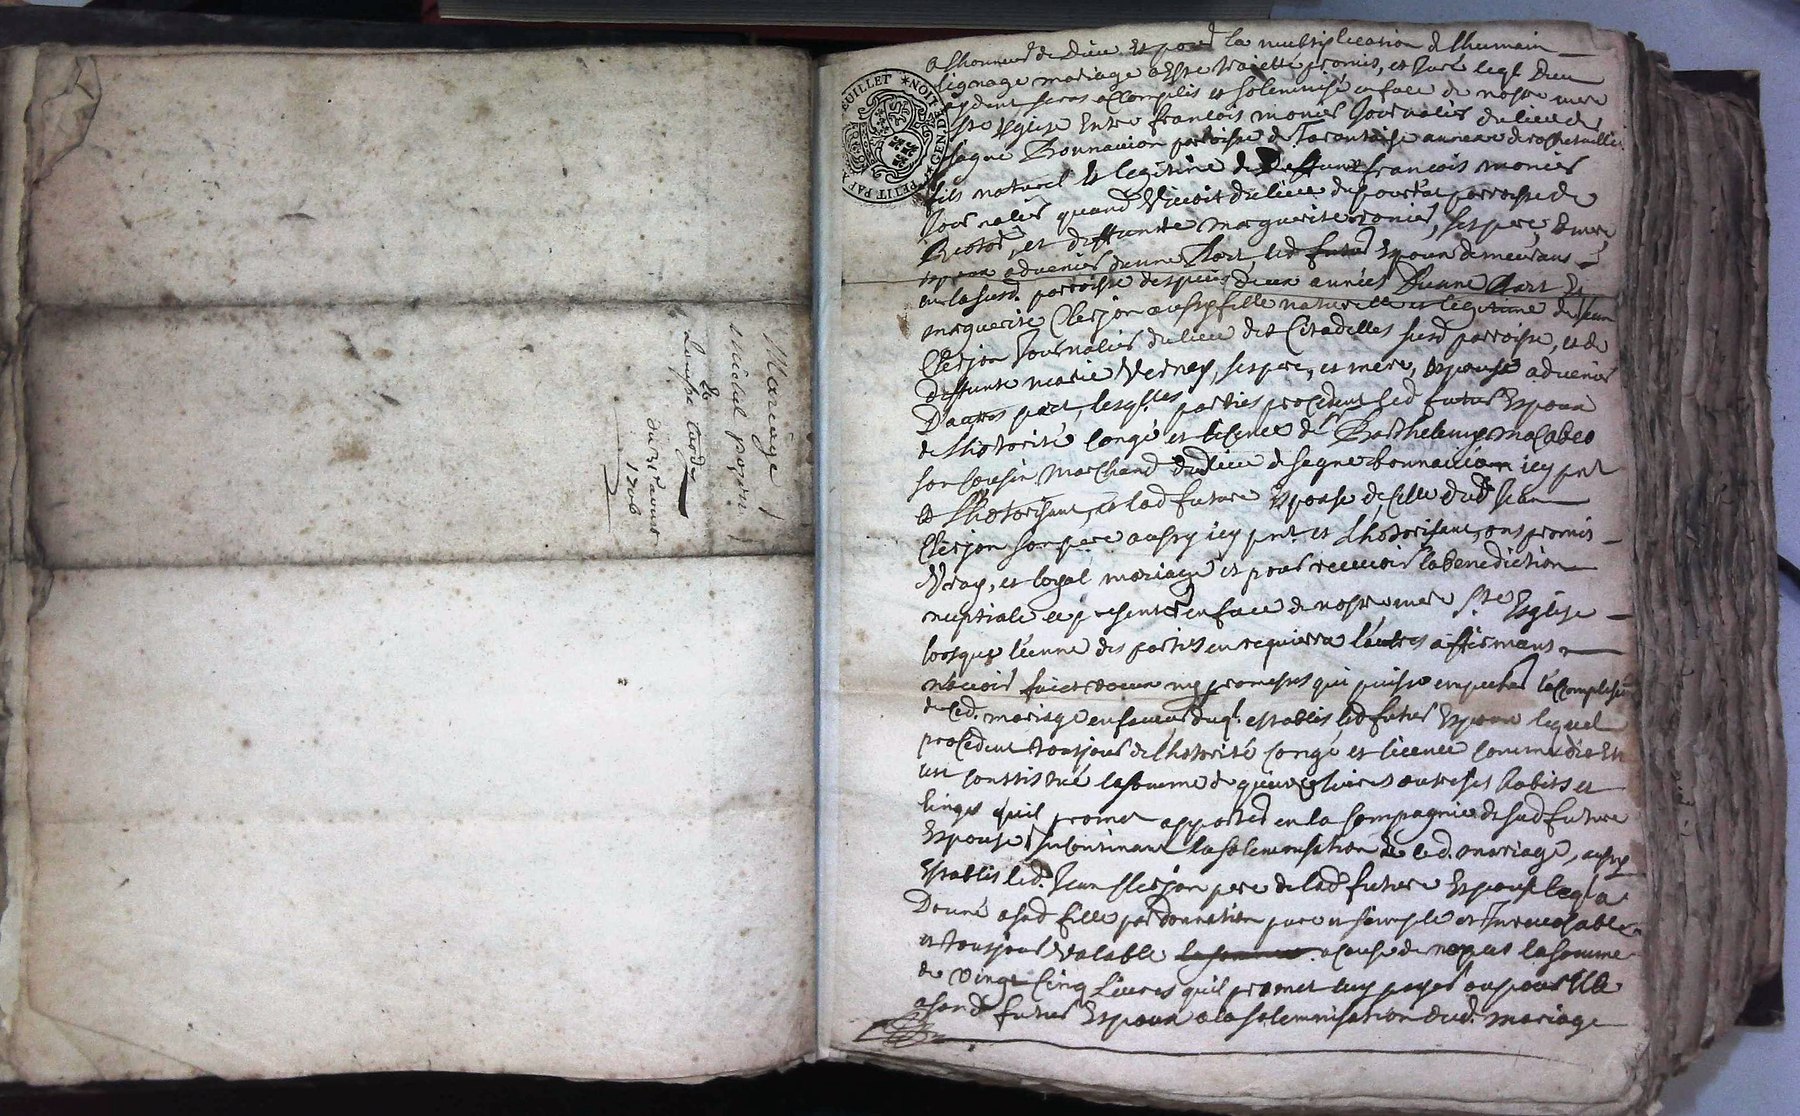 Mariage
michel
du 27e aoust
1706
PETIT PAP
FEUILLET * NOIT
A lhonneur de Dieu Et pour la multiplication de lhumain
lignage mariage a Este traicté promis, et Juré leql Dieu
aydant sera accomplis et solemnisé en face de nostre mere
Ste Eglise Entre francois monier Journalier du lieu de
sagne Bonnauion parroisse de Tarantaise annexe de rochetaillie
fils naturel Et legitime de Deffunt francois monier
Journalier quand Viuoit du lieu du parroisse de
et deffunte marguerite ses pere, Et mere
Epoux aduenir Dunne Part led futur Epoux demeurant
en la susd. parroisse despuis deux années Dunne Part Et
marguerite Clerjon aussy fille naturelle et legitime de Jean
Clerjon Journalier du lieu des Citadelles susd parroisse, et de
deffunte marie Verney, ses pere, et mere, Espouse aduenir
Dautre part, lesqlles parties procedent led futur Espoux
de lhotorité congé et licence de sr Barthelemy
son cousin marchand dudlieu de sagne bonnauion icy pnt
et lhotorisant, et lad future Espouse de celle dud Jean
Clerjon son pere aussy icy pnt et lhotorisant, ont promis
Vray, et loyal mariage et pour receuoir la benediction
nuptiale se presenter en face de nostre mere Ste Eglise
lorsque lunne des parties en requierra lautre affirmans
nauoir faict aucunne promesses qui puisse empecher laccomplissemt
de ced. mariage en faueur duql. establis led futur Espoux lequel
procedent tousjours de lhotorité congé et licence comme dict Et
cest constitué la somme de liures outre ses habits et
linges quil promet apporter en la compagnie de sad future
Espouse Incontinant la solemnisation de ced. mariage, aussy
Establis led. Jean Clerjon pere de lad future Espouse leql a
Donné a sad fille par donnation pure et simple et Irreuocable
et tousjours Valable la somme a cause de nopces la somme
de Vingt Cinq Liures quil promet luy payer ou pour Elle
a sond futur Espoux a la solemnisation dud. mariage